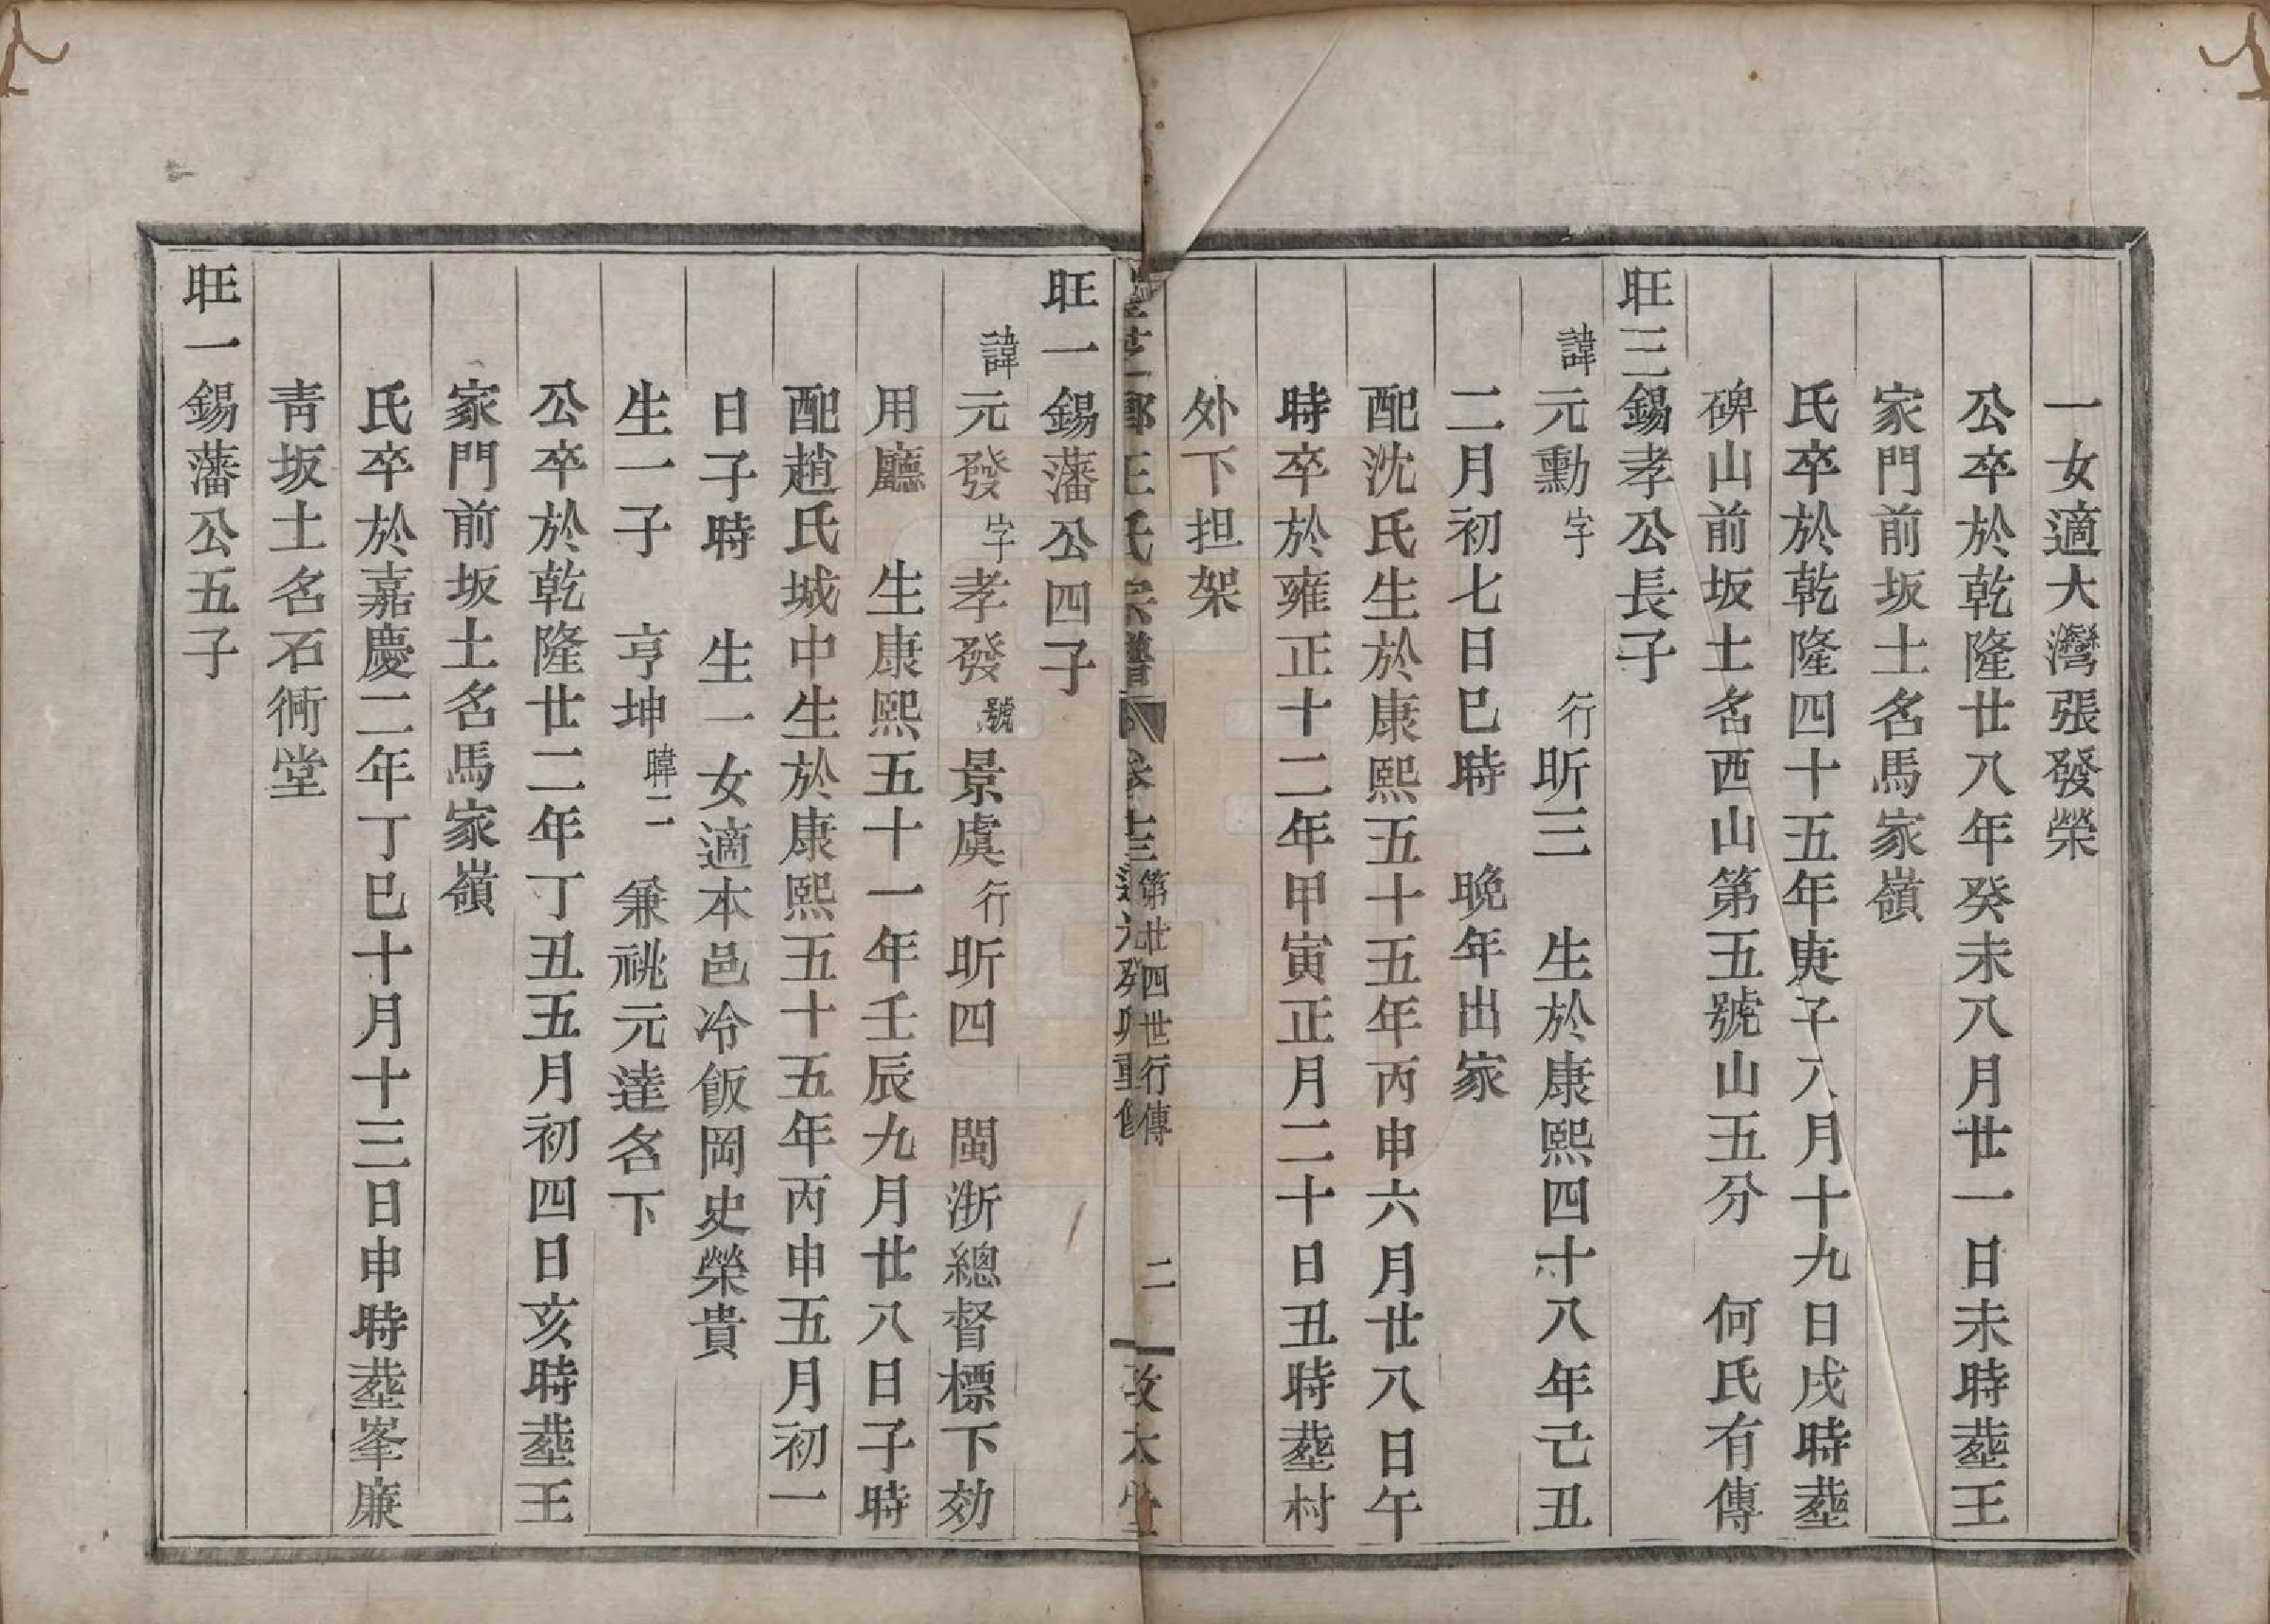 一女適大灣張發榮
公卒於乾隆廿八年癸未八月廿一日未時塟王
家門前坂土名馬家嶺
氏卒於乾隆四十五年庚子六月十九日戌時塟
碑山前坂土名西山第五號山五分 何氏有傳
旺三錫孝公長子
諱元勳字 行昕三 生於康熙四十八年己丑
二月初七日巳時 晚年出家
配沈氏生於康熙五十五年丙申六月廿八日午
時卒於雍正十二年甲寅正月二十日丑時塟村
外下担架
王氏宗譜 卷十三 第廿四世行傳 二
旺一錫藩公四子
諱元發字孝發號景虞行昕四 閩浙總督標下効
用廳 生康熙五十一年壬辰九月廿八日子時
配趙氏城中生於康熙五十五年丙申五月初一
日子時 生一女適本邑冷飯岡史榮貴
生一子 亨坤暐二 兼祧元達名下
公卒於乾隆廿二年丁丑五月初四日亥時塟王
家門前坂土名馬家嶺
氏卒於嘉慶二年丁巳十月十三日申時塟峯廉
青坂土名石衕堂
旺一錫藩公五子